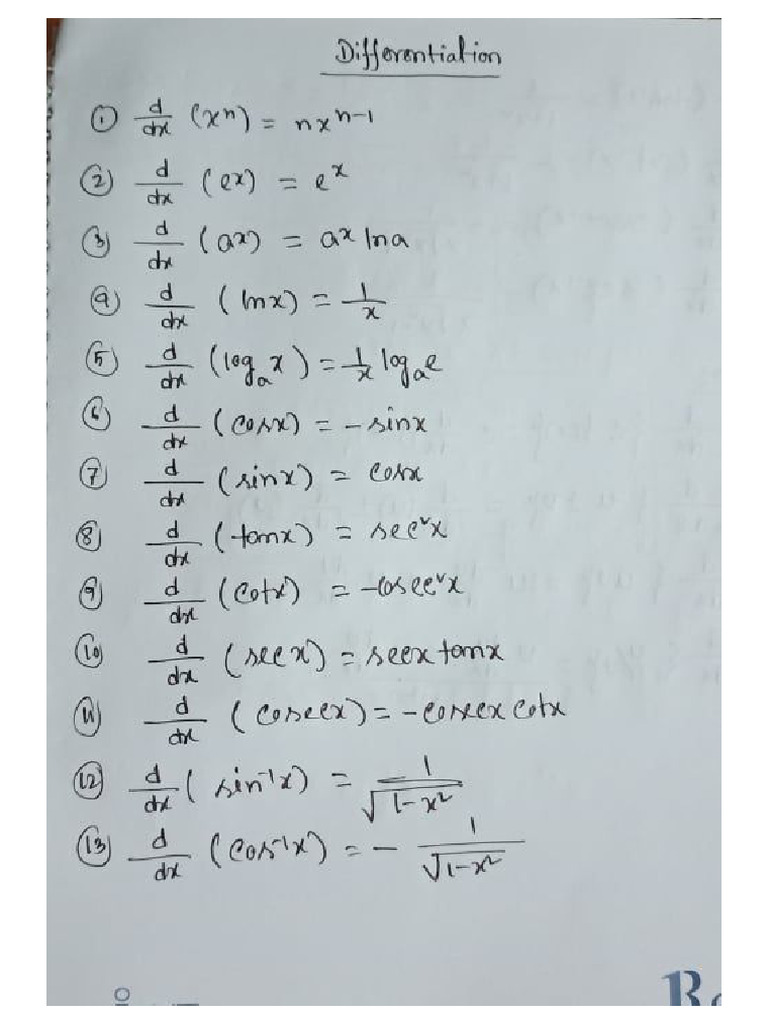 Differentiation
① d/dx (xⁿ) = nxⁿ⁻¹
② d/dx (eˣ) = eˣ
③ d/dx (aˣ) = aˣ lna
④ d/dx (lnx) = 1/x
⑤ d/dx (logₐx) = 1/x logₐe
⑥ d/dx (cosx) = -sinx
⑦ d/dx (sinx) = cosx
⑧ d/dx (tanx) = sec²x
⑨ d/dx (cotx) = -cosec²x
⑩ d/dx (secx) = secx tanx
⑪ d/dx (cosecx) = -cosecx cotx
⑫ d/dx (sin⁻¹x) = 1/√(1-x²)
⑬ d/dx (cos⁻¹x) = - 1/√(1-x²)